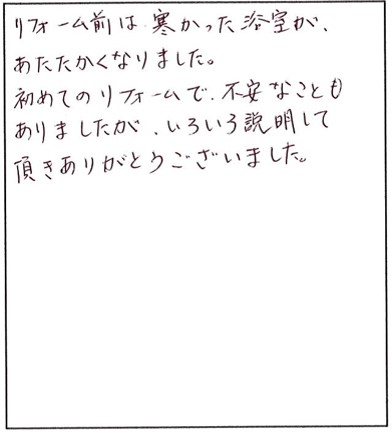 リフォーム前は寒かった浴室が、
あたたかくなりました。
初めてのリフォームで、不安なことも
ありましたが、いろいろ説明して
頂きありがとうございました。